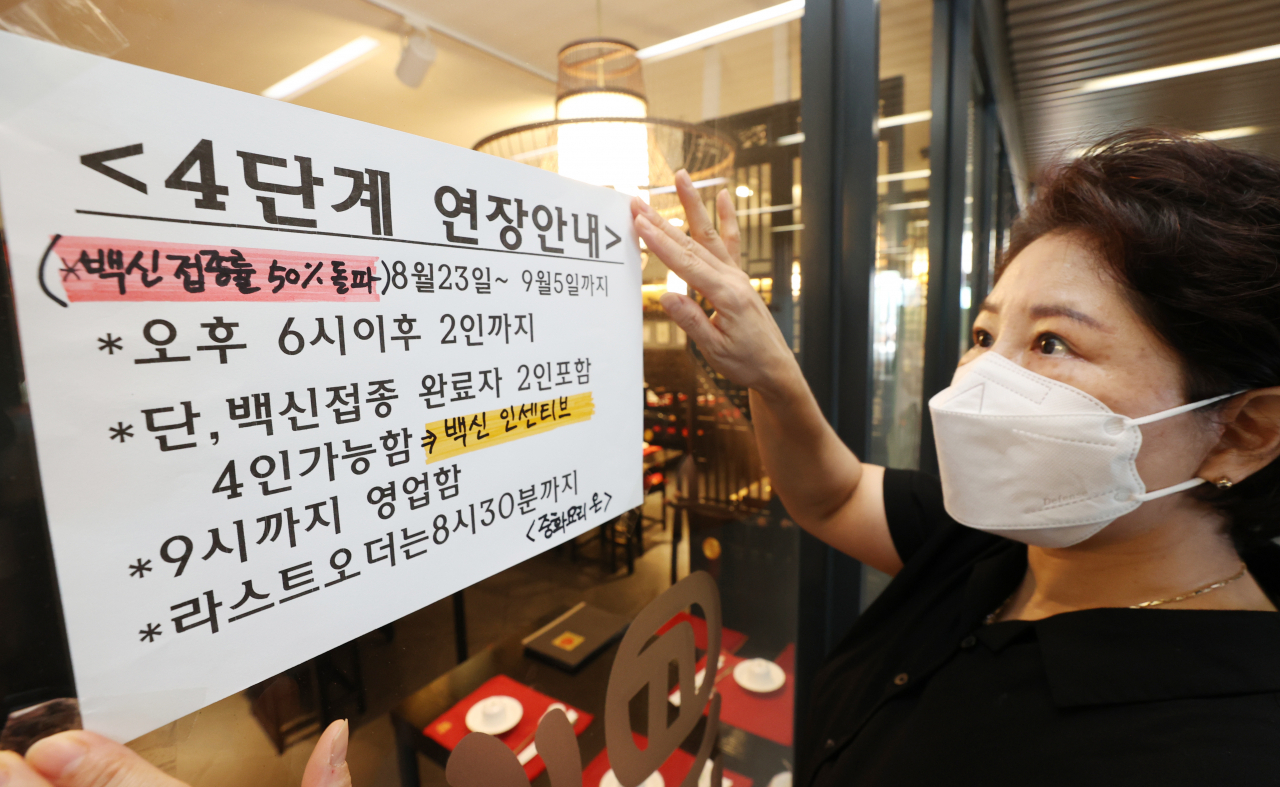 <4단계 연장안내>
(*백신접종률 50% 돌파)8월23일~ 9월5일까지
*오후 6시이후 2인까지
*단,백신접종 완료자 2인포함
4인가능함→백신 인센티브
*9시까지 영업함
*라스트오더는8시30분까지
<중화요리 온>